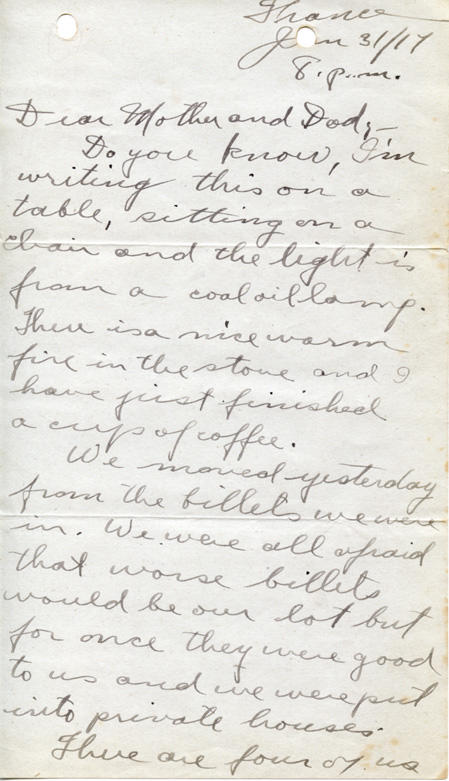 France
Jan 31/17
8.p.m.
Dear Mother and Dad;-
Do you know, I'm
writing this on a
table, sitting on a
chair and the light is
from a coal oil lamp.
There is a nice warm
fire in the stove and I
have just finished
a cup of coffee.
We moved yesterday
from the billets we were
in. We were all afraid
that worse billets
would be our lot but
for once they were good
to us and we were put
into private houses.
There are four of us